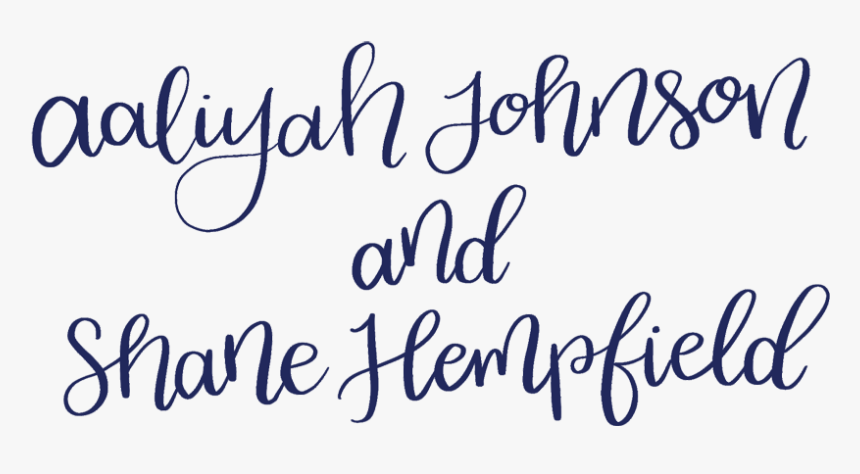 Aaliyah Johnson
and
Shane Hempfield